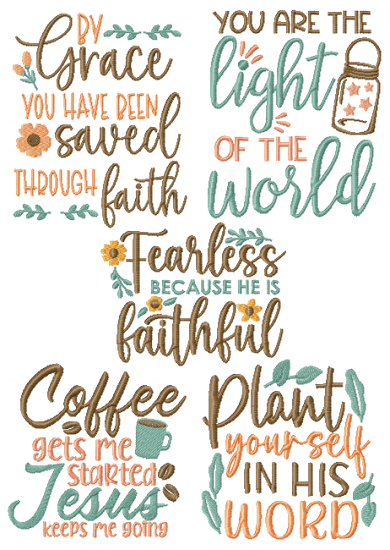 BY
Grace
YOU HAVE BEEN
saved
THROUGH faith
YOU ARE THE
light
OF THE
world
Fearless
BECAUSE HE IS
faithful
Coffee
gets me
started
Jesus
keeps me going
Plant
yourself
IN HIS
WORD